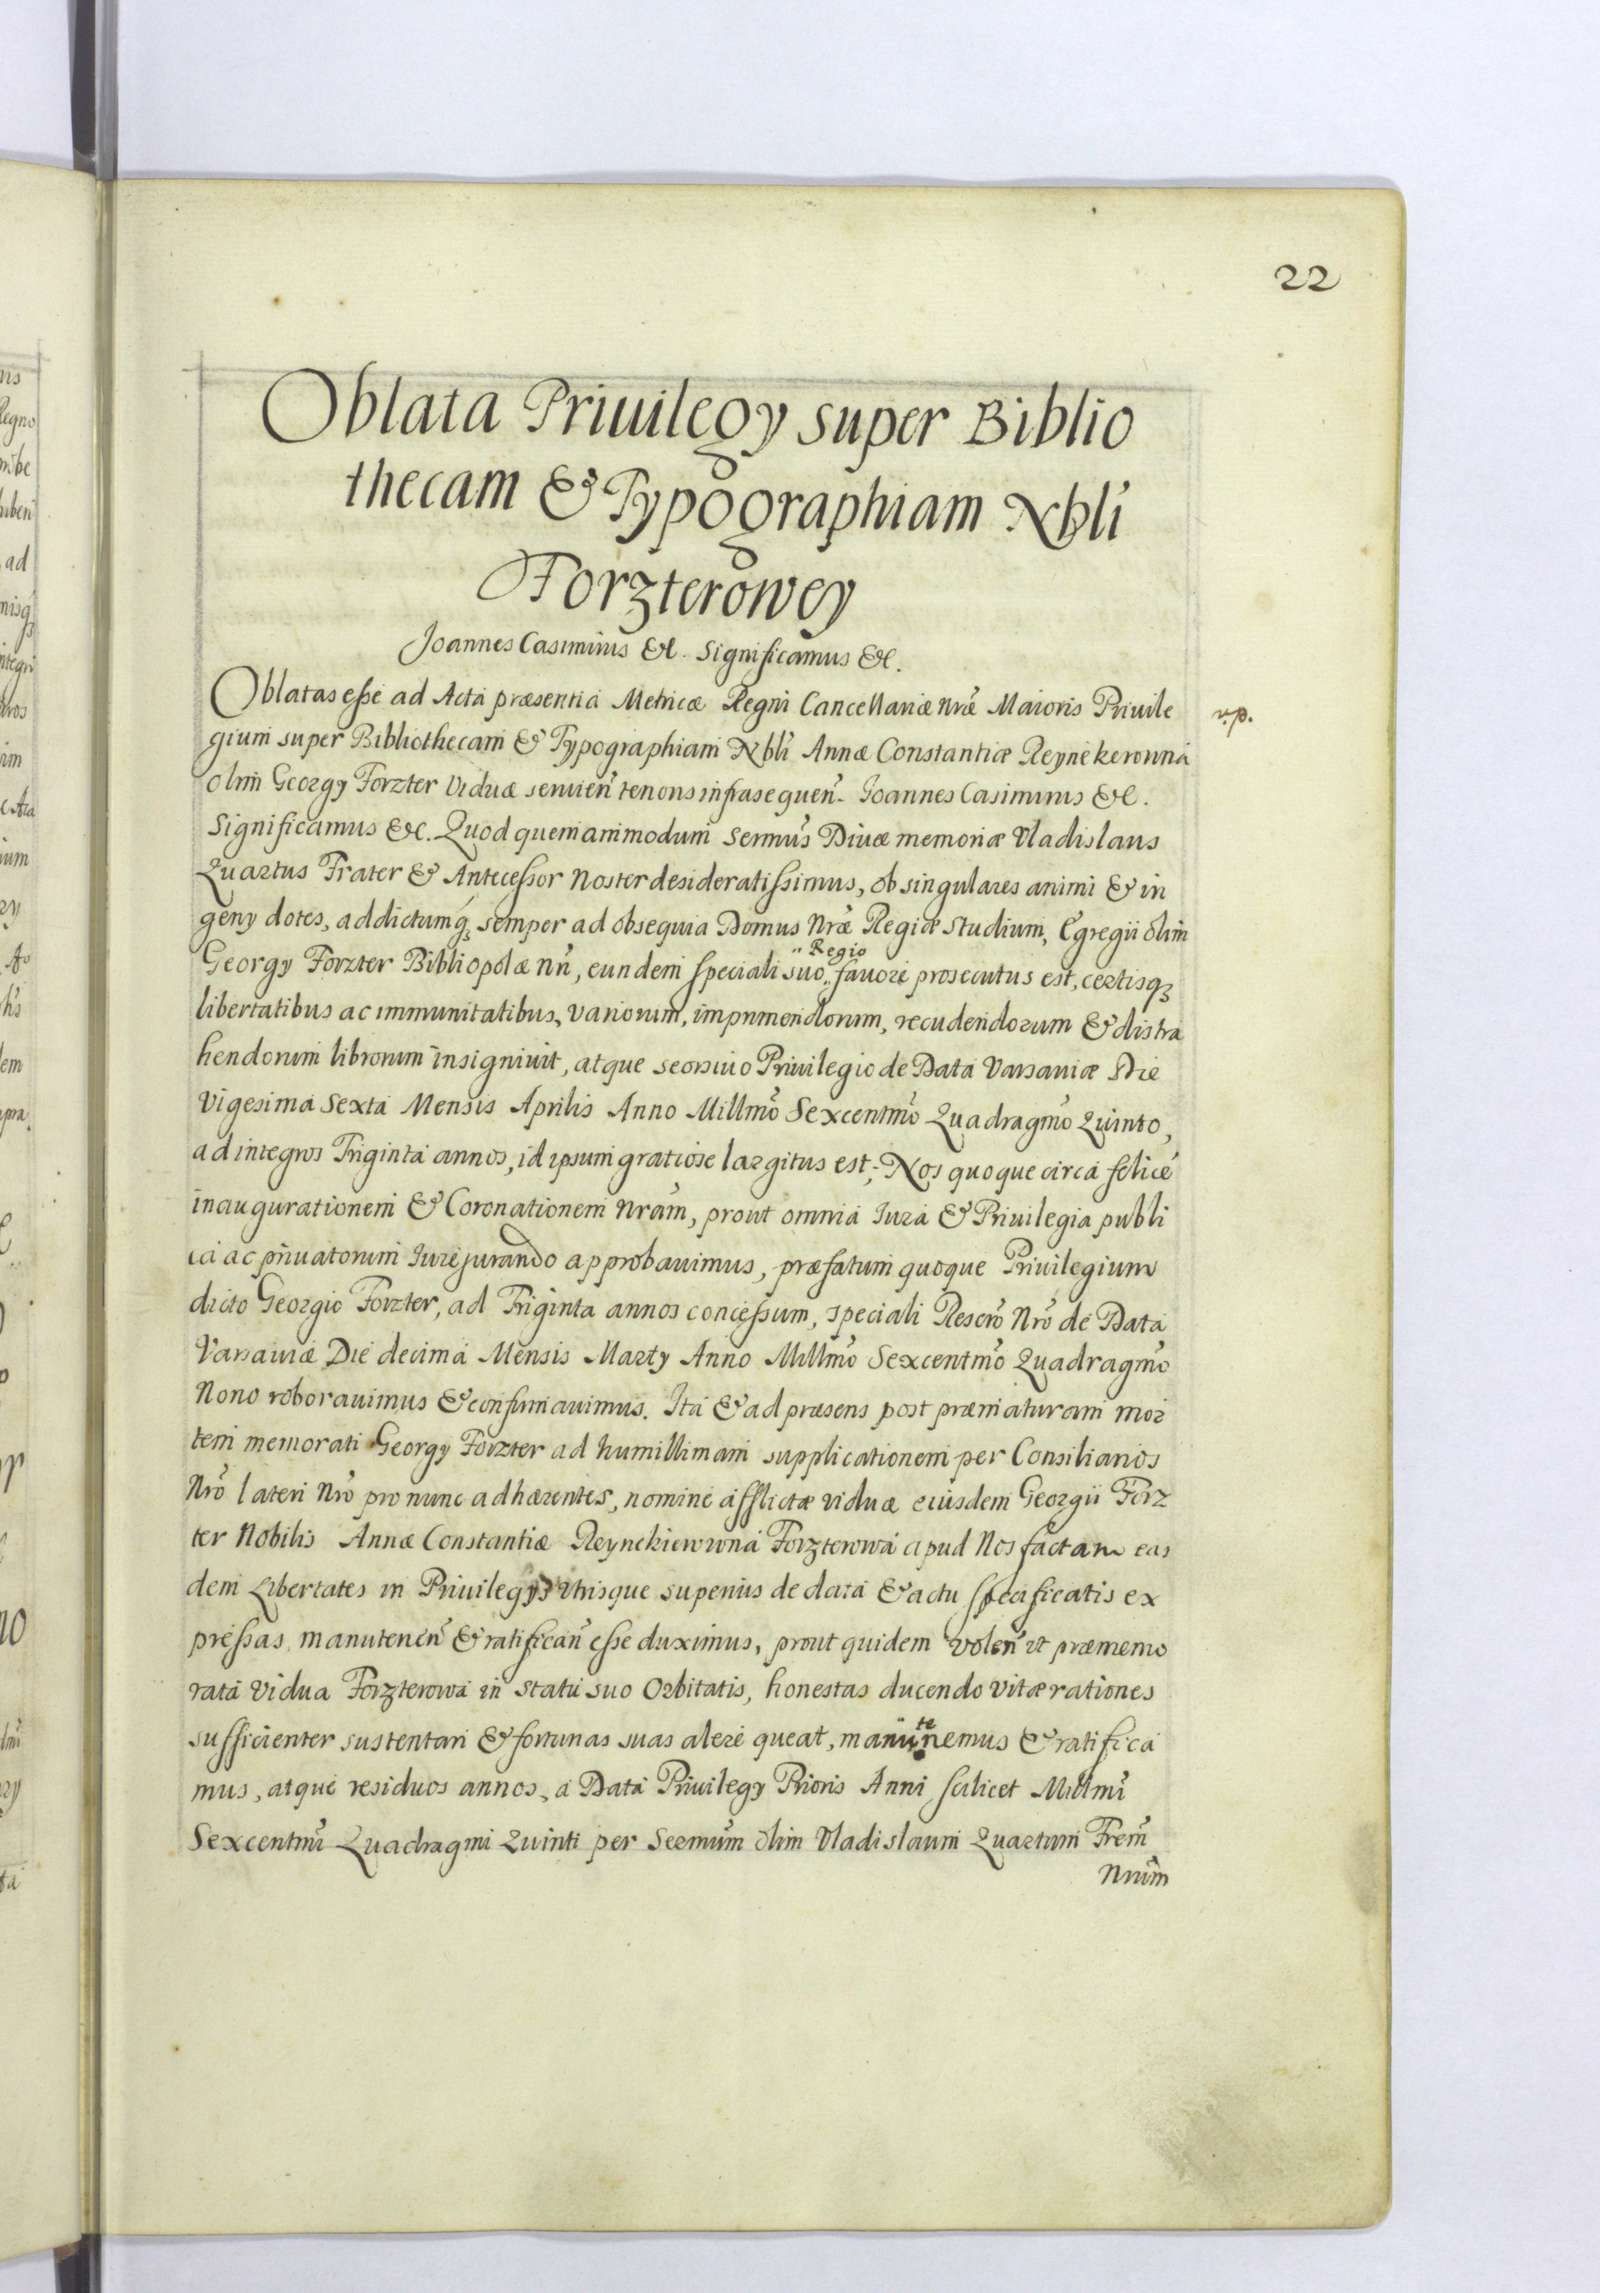 22
Oblata Priuilegy super Biblio
thecam & Typographiam Nbli
Forzterowey
Joannes Casimirus &c. Significamus &c.
Oblatas esse ad Acta præsentia Metricæ Regni Cancellariæ nræ Maioris Priuile
v.p.
gium super Bibliothecam & Typographiam Nbli Annæ Constantiæ Reynekerowna
olim Georgy Forzter Viduæ seruien tenoris infrasequen. Joannes Casimirus &c.
Significamus &c. Quod quemammodum sermus Diuæ memoriæ Vladislaus
Quartus Frater & Antecessor Noster desideratissimus, ob singulares animi & in
geny dotes, addictumq semper ad obsequia Domus Nræ Regiæ studium, Egregii olim
Georgy Forzter Bibliopolæ nri, eundem speciali suo Regio fauore prosecutus est, certisq
libertatibus ac immunitatibus, variorum, imprimendorum, recudendorum & distra
hendorum librorum insigniuit, atque seorsiuo Priuilegio de Data Varsauiæ Die
Vigesima Sexta Mensis Aprilis Anno Millmo Sexcentmo Quadragmo Quinto,
ad integros Triginta annos, id ipsum gratiose largitus est; Nos quoque circa felice
inaugurationem & Coronationem nram, prout omnia Iura & Priuilegia publi
ca ac priuatorum Iurejurando approbauimus, præfatum quoque Priuilegium
dicto Georgio Forzter, ad Triginta annos concessum, speciali Rescro Nro de Data
Varsauiæ Die decima Mensis Marty Anno Millmo Sexcentmo Quadragmo
Nono roborauimus & confirmauimus. Ita & ad præsens post præmaturam mor
tem memorati Georgy Forzter ad humillimam supplicationem per Consiliarios
Nro lateri Nro pro nunc adhærentes, nomine afflictæ viduæ eiusdem Georgii Forz
ter Nobilis Annæ Constantiæ Reynekierowna Forzterowa apud Nos factam eas
dem Libertates in Priuilegys Vtrisque superius de data & actu specificatis ex
pressas manutenen & ratifican esse duximus, prout quidem volen vt præmemo
rata Vidua Forzterowa in statu suo Orbitatis, honestas ducendo vitæ rationes
sufficienter sustentari & fortunas suas alere queat, manutenemus & ratifica
mus, atque residuos annos, a Data Priuilegy Prioris Anni scilicet Millmi
Sexcentmi Quadragmi Quinti per Sermum olim Vladislaum Quartum Frem
Nrum